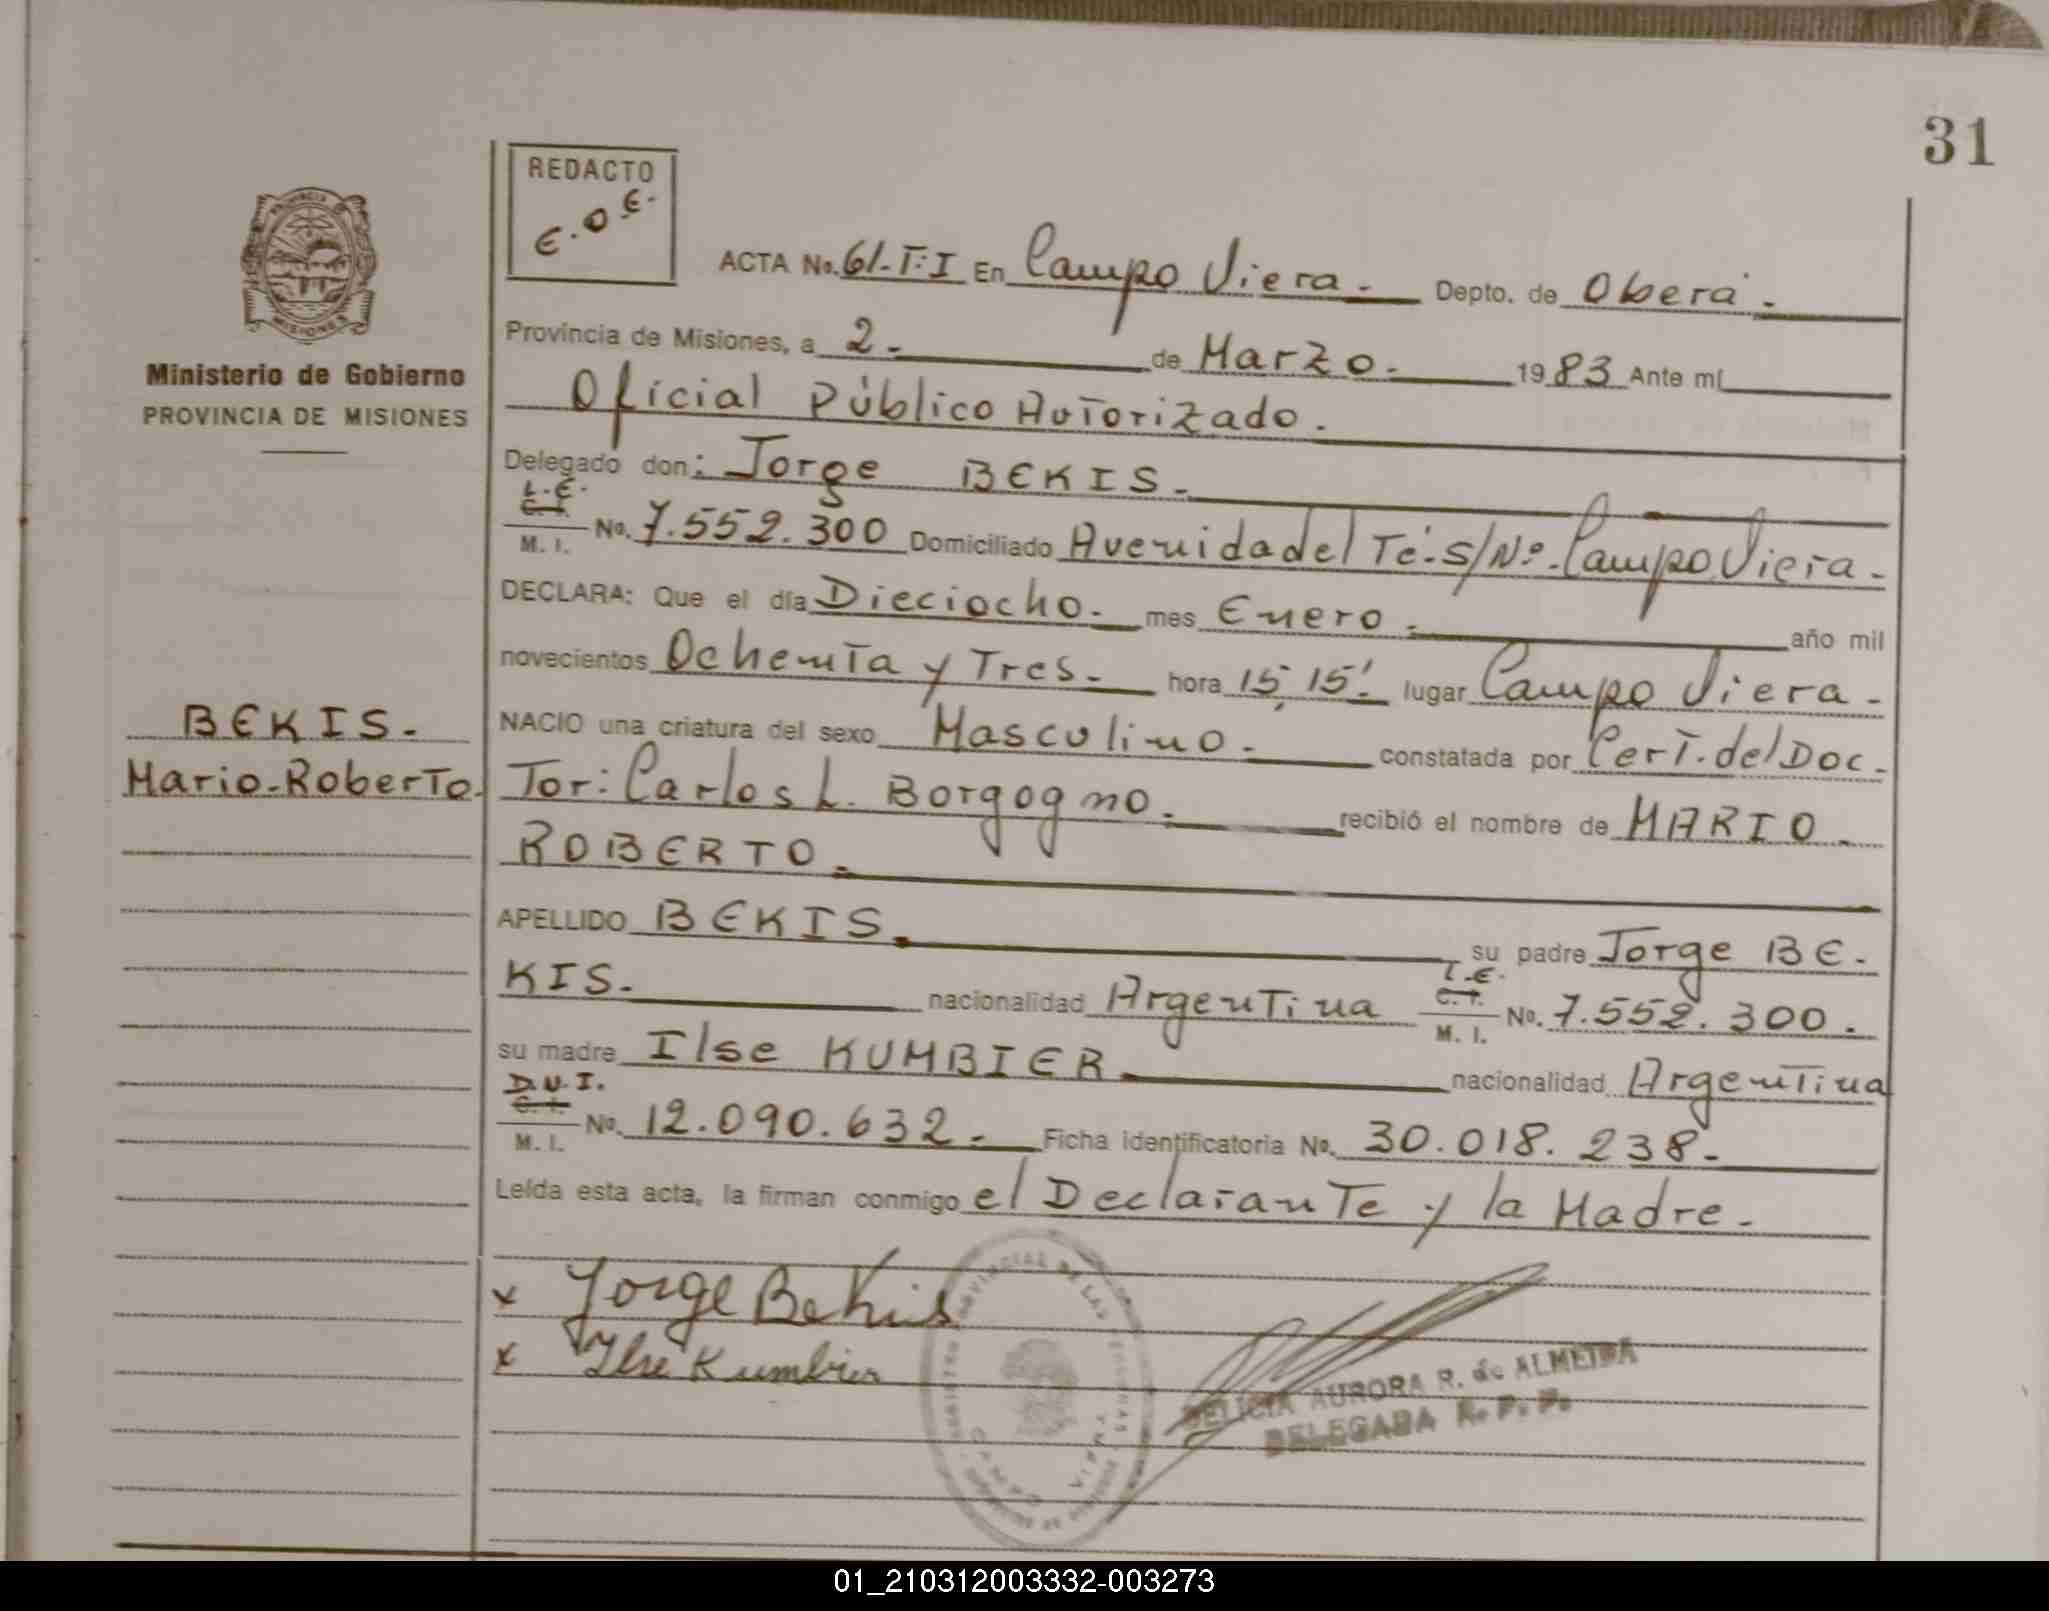 31
REDACTO
E.O.E.
PROVINCIA
MISIONES
Ministerio de Gobierno
PROVINCIA DE MISIONES
ACTA No. 61-T:I En Campo Viera.- Depto. de Oberá.-
Provincia de Misiones, a 2.- de Marzo.- 1983 Ante mí
Oficial Público Autorizado.
Delegado don: Jorge BEKIS.-
L.E.
C.I.
M. I. No. 7.552.300 Domiciliado Avenida del Té.S/Nº.Campo Viera.-
DECLARA: Que el día Dieciocho.- mes Enero.- año mil
novecientos Ochenta y Tres.- hora 15,15'.- lugar Campo Viera.-
NACIO una criatura del sexo Masculino.- constatada por Cert.del Doc-
Tor: Carlos L. Borgogno.- recibió el nombre de MARIO
ROBERTO.-
BEKIS.-
Mario-Roberto.
APELLIDO BEKIS.- su padre Jorge BE-
KIS.- nacionalidad Argentina L.E. C.I. M. I. No. 7.552.300.
su madre Ilse KUMBIER.- nacionalidad Argentina
D.N.I.
C.I.
M. I. No. 12.090.632.- Ficha identificatoria No. 30.018.238.-
Leída esta acta, la firman conmigo el Declarante y la Madre.-
x Jorge Bekis
x Ilse Kumbier
REGISTRO PROVINCIAL DE LAS PERSONAS
CAMPO VIERA
DELICIA AURORA R. de ALMEIDA
DELEGADA R. P. P.
01_210312003332-003273